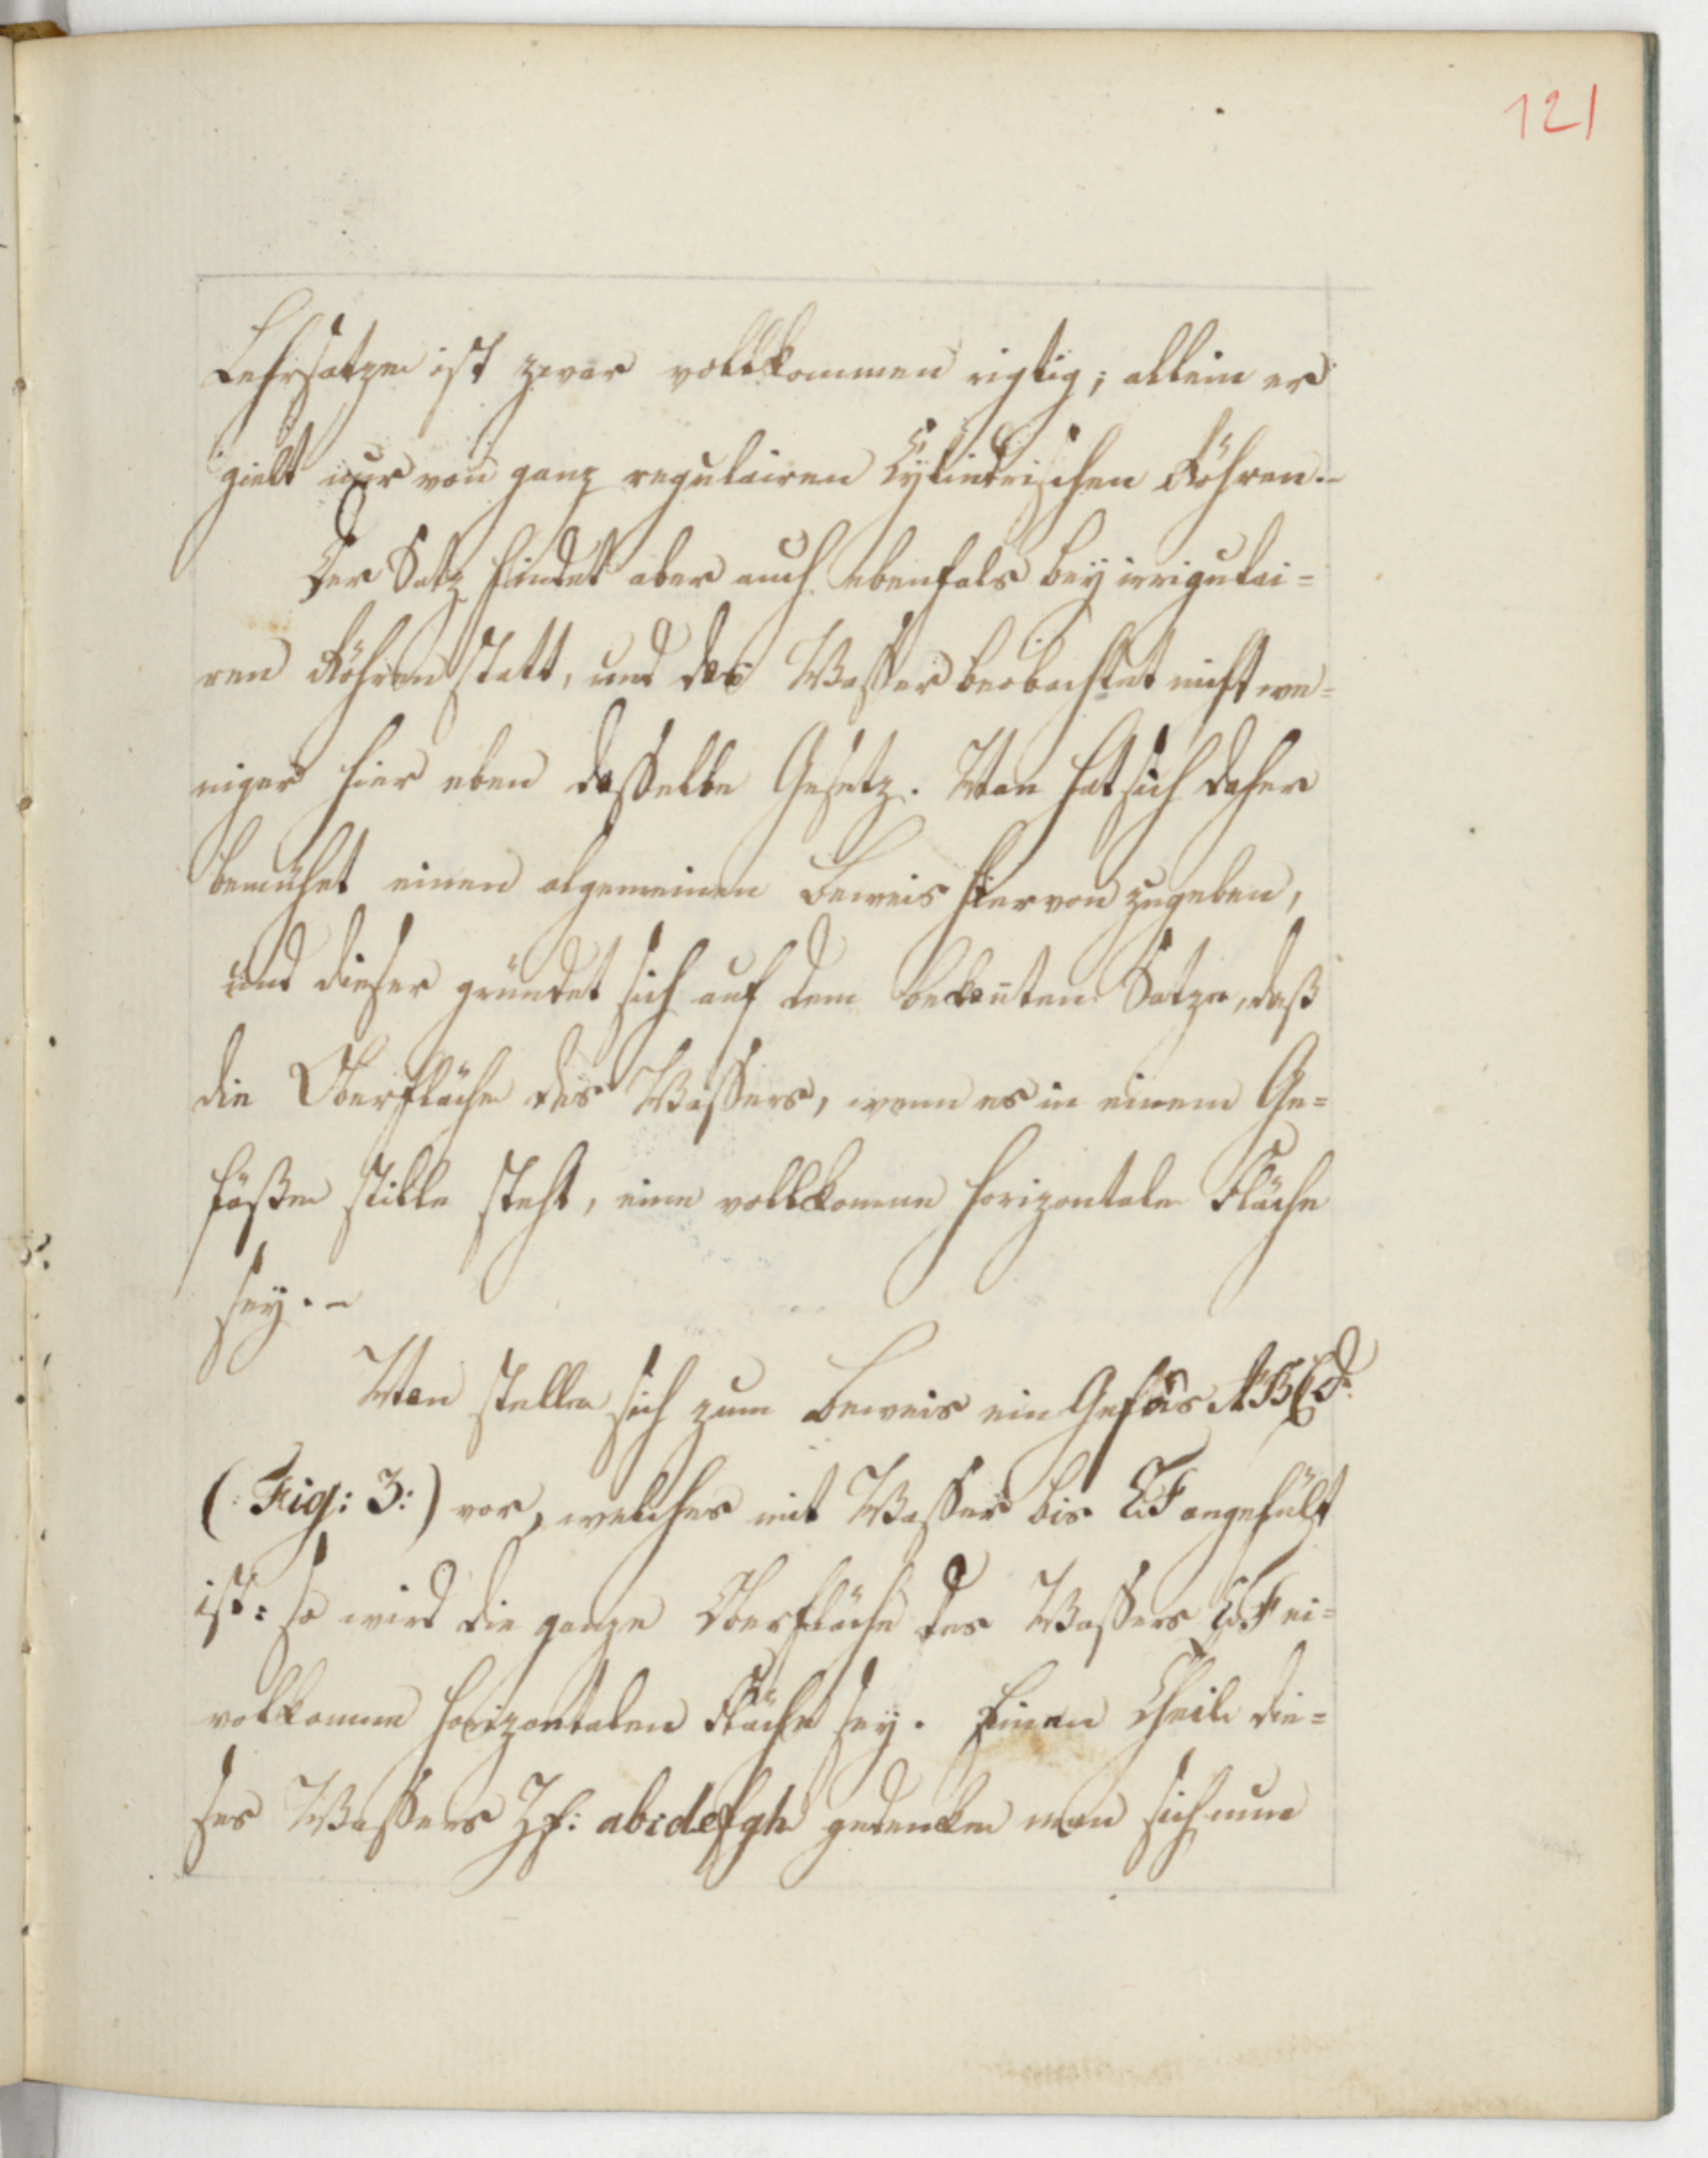 121
Lehrsatzes ist zwar vollkommen rigtig; allein er
gielt nur von ganz regulairen Cylindrischen Röhren.-
Der Satz findet aber auch ebenfals bey irrigulai=
ren Röhren statt, und das Waßer beobachtet nicht we=
niger hier eben daßelbe Gesetz. Man hat sich daher
bemühet einen algemeinen Beweis hiervon zugeben,
und dieser gründet sich auf dem bekañten Satze, daß
die Oberfläche des Waßers, wenn es in einem Ge=
fäße stille steht, eine vollkomne horizontale Fläche
sey.-
Man stelle sich zum Beweis ein Gefäs ABCD.
(: Fig: 3:) vor, welches mit Waßer bis EF angefült
ist: so wird die ganze Oberfläche des Waßers EF ei=
volkomne horizontalen Fläche sey. Einen Theil die=
ses Waßers Zf: abcdefgh gedenke man sich nun